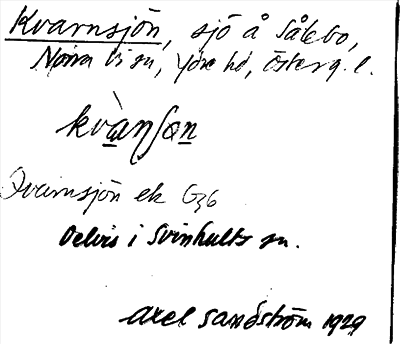 Kvarnsjön, sjö å Sålebo,
Norra Vi sn, Ydre hd, Österg. l.
kvànʃən
Qvarnsjön ek G36
Delvis i Svinhults sn.
Axel Sandström 1929